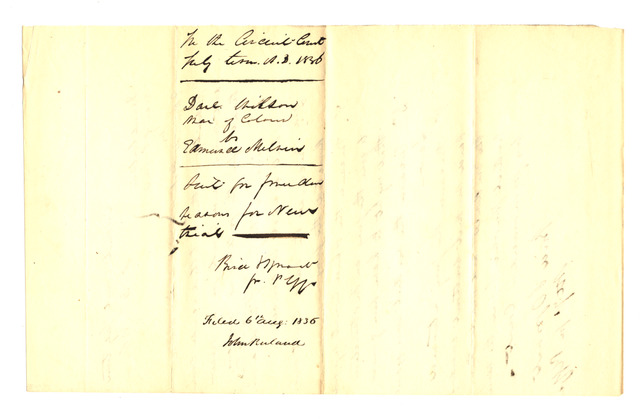 In the Circuit Court
July term A.D. 1836
Dan. Wilson
Man of Colour
vs
Edmund Melvin
Suit for freedom
reasons for New
trial
for Plffs
Filed 6 Aug. 1836
John Ruland